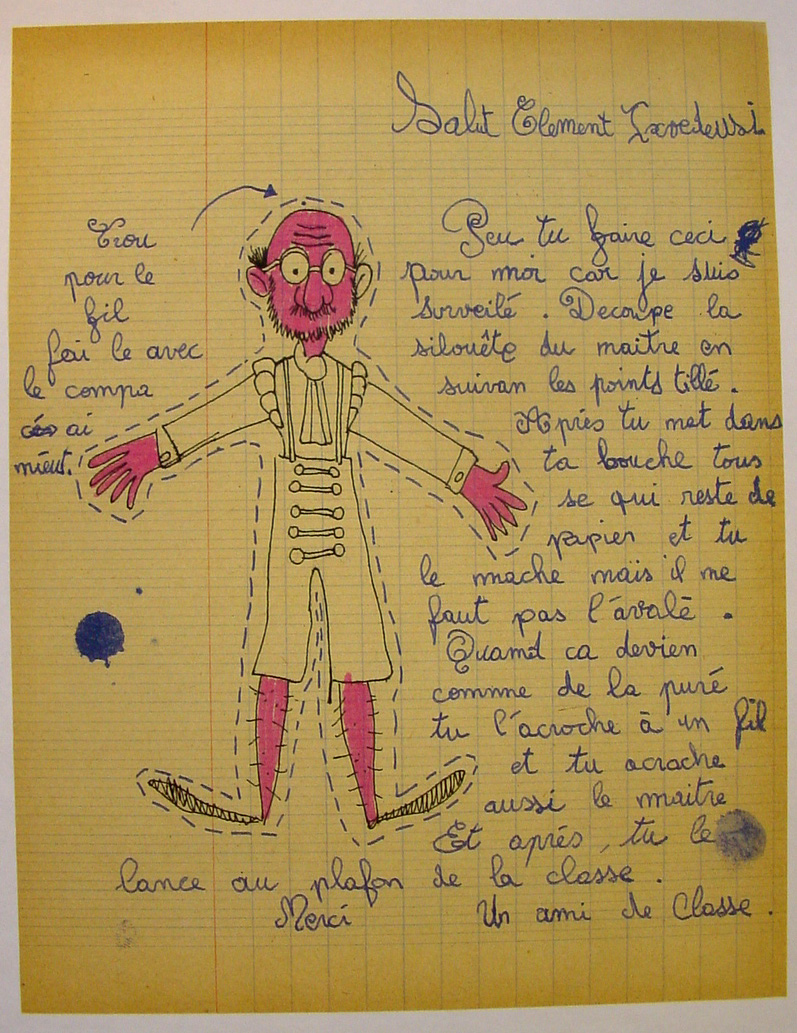 Salut Clement
Trou
pour le
fil
fai le avec
le compa
ai
mieut.
Peu tu faire ceci
pour moi car je suis
surveilé . Decoupe la
silouête du maitre en
suivan les points tillé .
Après tu met dans
ta bouche tous
se qui reste de
papier et tu
le mache mais il ne
faut pas l'avalé .
Quand ca devien
comme de la puré
tu l'acroche à un fil
et tu acroche
aussi le maitre
Et après , tu le
lance au plafon de la classe .
Merci Un ami de Classe .